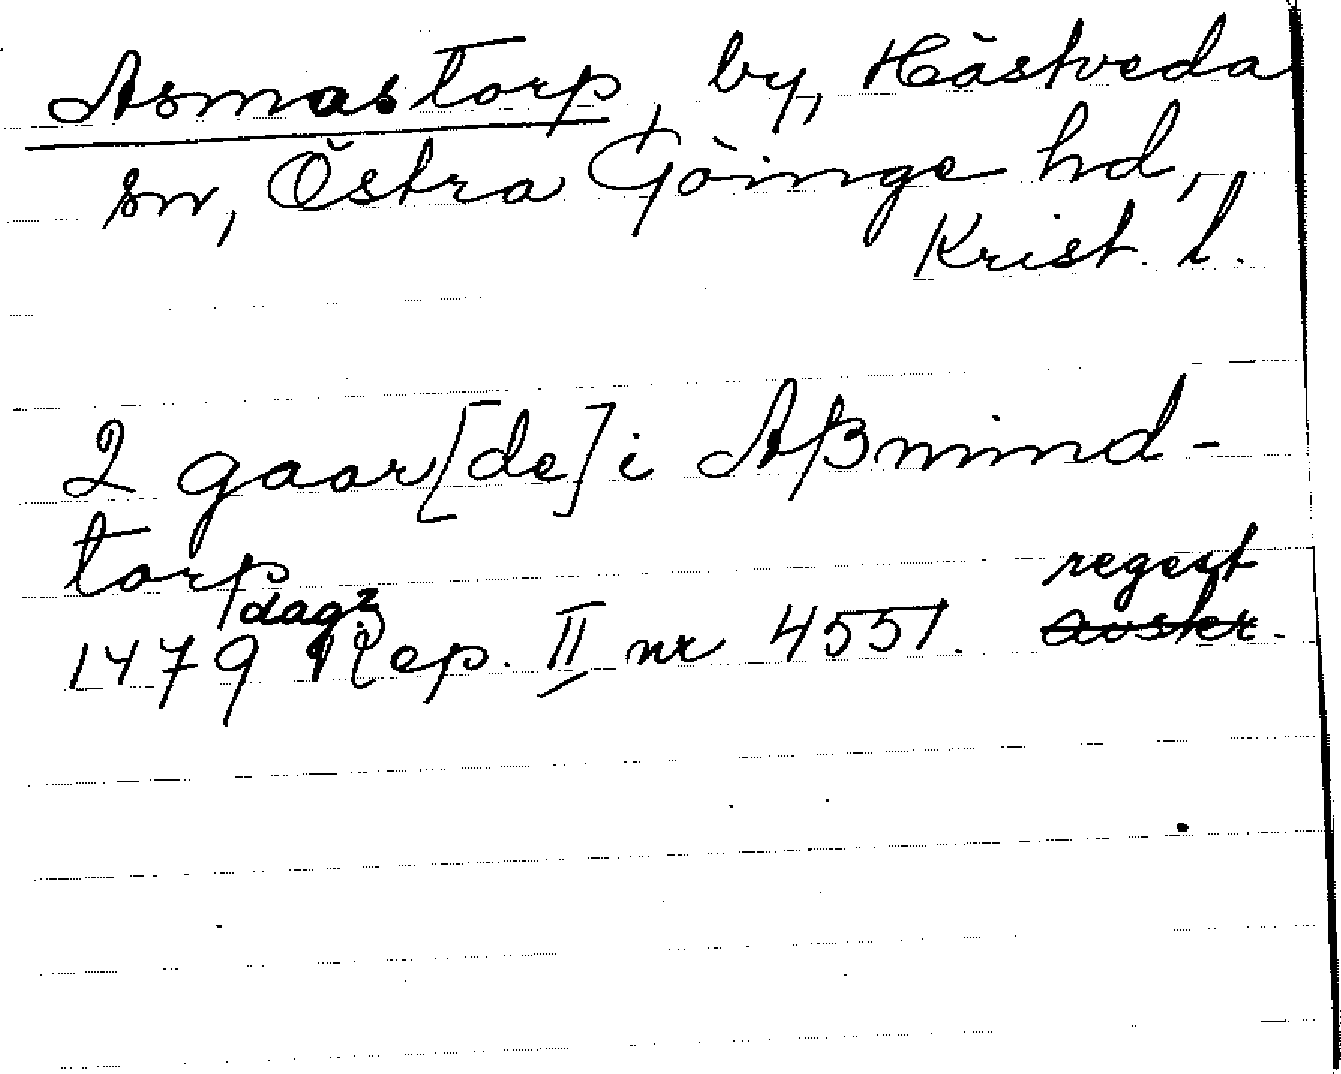 Asmastorp, by, Hästveda
sn, Östra Göinge hd,
Krist. l.
2 gaar[de] i Aßmind-
torp
regest
dag?
1479 Rep. II nr 4551. avskr.